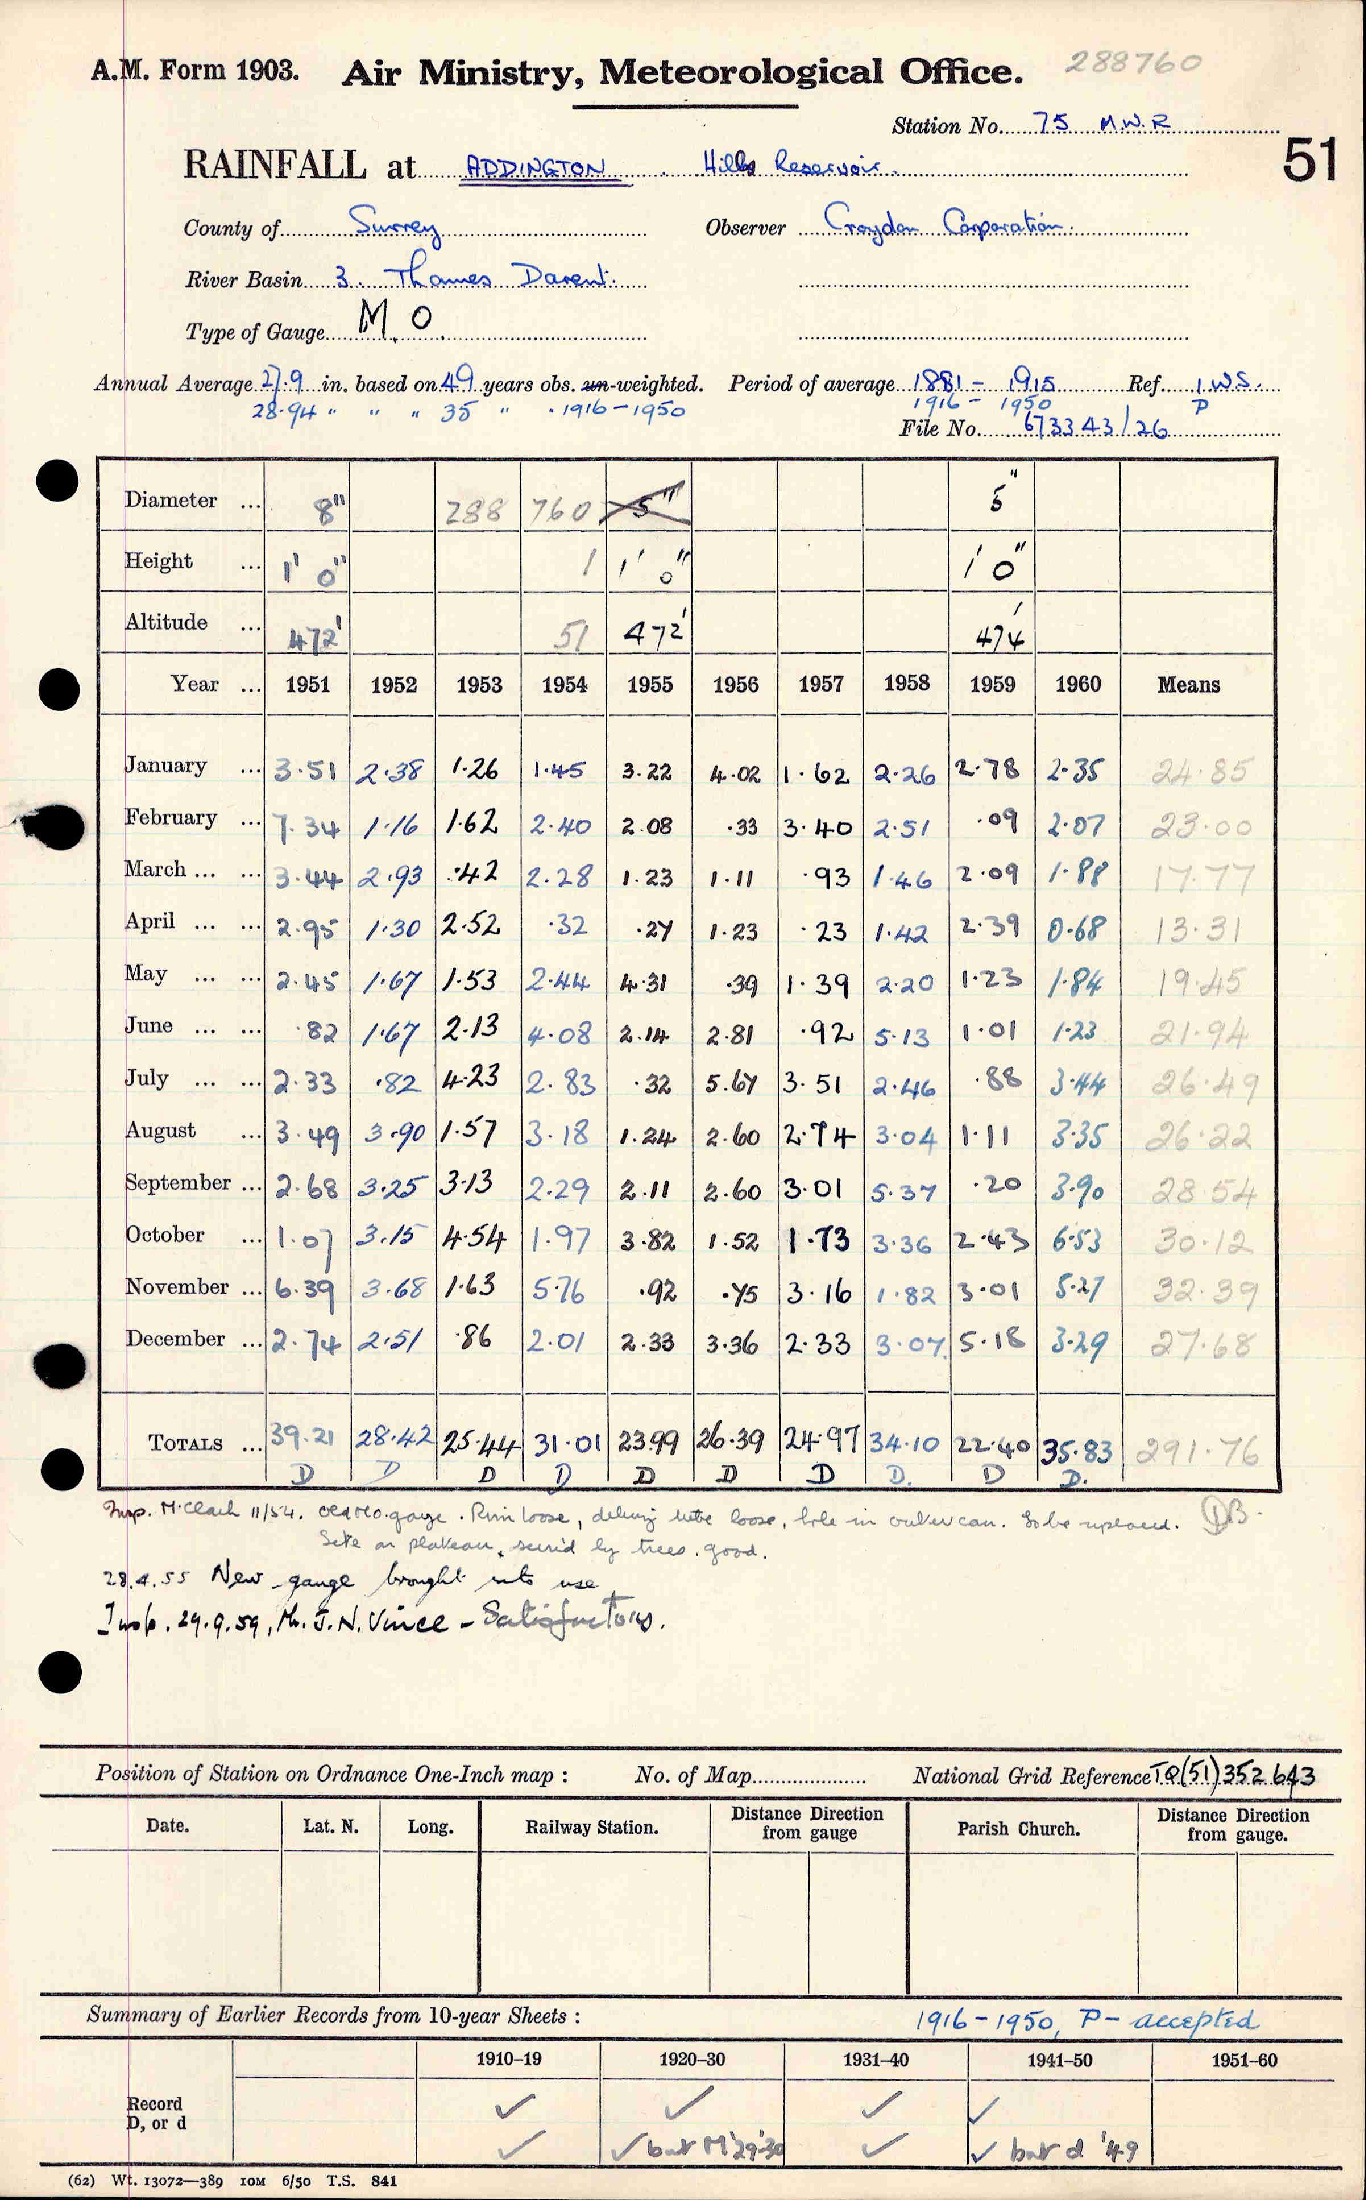 A.M. Form 1903. Air Ministry, Meteorological Office. 288760
Station No. 75 M.W.R
RAINFALL at ADDINGTON. Hills Reservoir. 51
County of Surrey Observer Croydon Corporation.
River Basin 3. Thames Darent.
Type of Gauge M.O.
Annual Average 27.9 in. based on 49 years obs. un-weighted. Period of average 1881 - 1915 Ref. I.W.S.
28.94 " " " 35 " . 1916-1950 1916 - 1950 P
File No. 673343/26
Diameter ... 8" 288 760 5" 5"
Height ... 1' 0" 1 1' 0" 1' 0"
Altitude ... 472' 51 472' 474'
Year ... 1951 1952 1953 1954 1955 1956 1957 1958 1959 1960 Means
January ... 3.51 2.38 1.26 1.45 3.22 4.02 1.62 2.26 2.78 2.35 24.85
February ... 7.34 1.16 1.62 2.40 2.08 .33 3.40 2.51 .09 2.07 23.00
March ... ... 3.44 2.93 .42 2.28 1.23 1.11 .93 1.46 2.09 1.88 17.77
April ... ... 2.95 1.30 2.52 .32 .27 1.23 .23 1.42 2.39 0.68 13.31
May ... ... 2.45 1.67 1.53 2.44 4.31 .39 1.39 2.20 1.23 1.84 19.45
June ... ... .82 1.67 2.13 4.08 2.14 2.81 .92 5.13 1.01 1.23 21.94
July ... ... 2.33 .82 4.23 2.83 .32 5.67 3.51 2.46 .88 3.44 26.49
August ... 3.49 3.90 1.57 3.18 1.24 2.60 2.74 3.04 1.11 3.35 26.22
September ... 2.68 3.25 3.13 2.29 2.11 2.60 3.01 5.37 .20 3.90 28.54
October ... 1.07 3.15 4.54 1.97 3.82 1.52 1.73 3.36 2.43 6.53 30.12
November ... 6.39 3.68 1.63 5.76 .92 .75 3.16 1.82 3.01 5.27 32.39
December ... 2.74 2.51 .86 2.01 2.33 3.36 2.33 3.07 5.18 3.29 27.68
TOTALS ... 39.21 28.42 25.44 31.01 23.99 26.39 24.97 34.10 22.40 35.83 291.76
D D D D D D D D. D D.
Insp. 11/54. Old MO. gauge. Rim loose, loose, hole in outer can. To be replaced. DB.
Site on plateau, by trees. good.
28.4.55 New gauge brought into use
Insp. 29.9.59, Mr. J.N. Vince - Satisfactory.
Position of Station on Ordnance One-Inch map : No. of Map National Grid Reference TQ(51)352 643
Date. Lat. N. Long. Railway Station. Distance Direction from gauge Parish Church. Distance Direction from gauge.
Summary of Earlier Records from 10-year Sheets : 1916-1950, P- accepted
1910-19 1920-30 1931-40 1941-50 1951-60
Record ✓ ✓ ✓ ✓
D, or d ✓ ✓ but M '29 '30 ✓ ✓ but d '49
(62) Wt. 13072—389 10M 6/50 T.S. 841